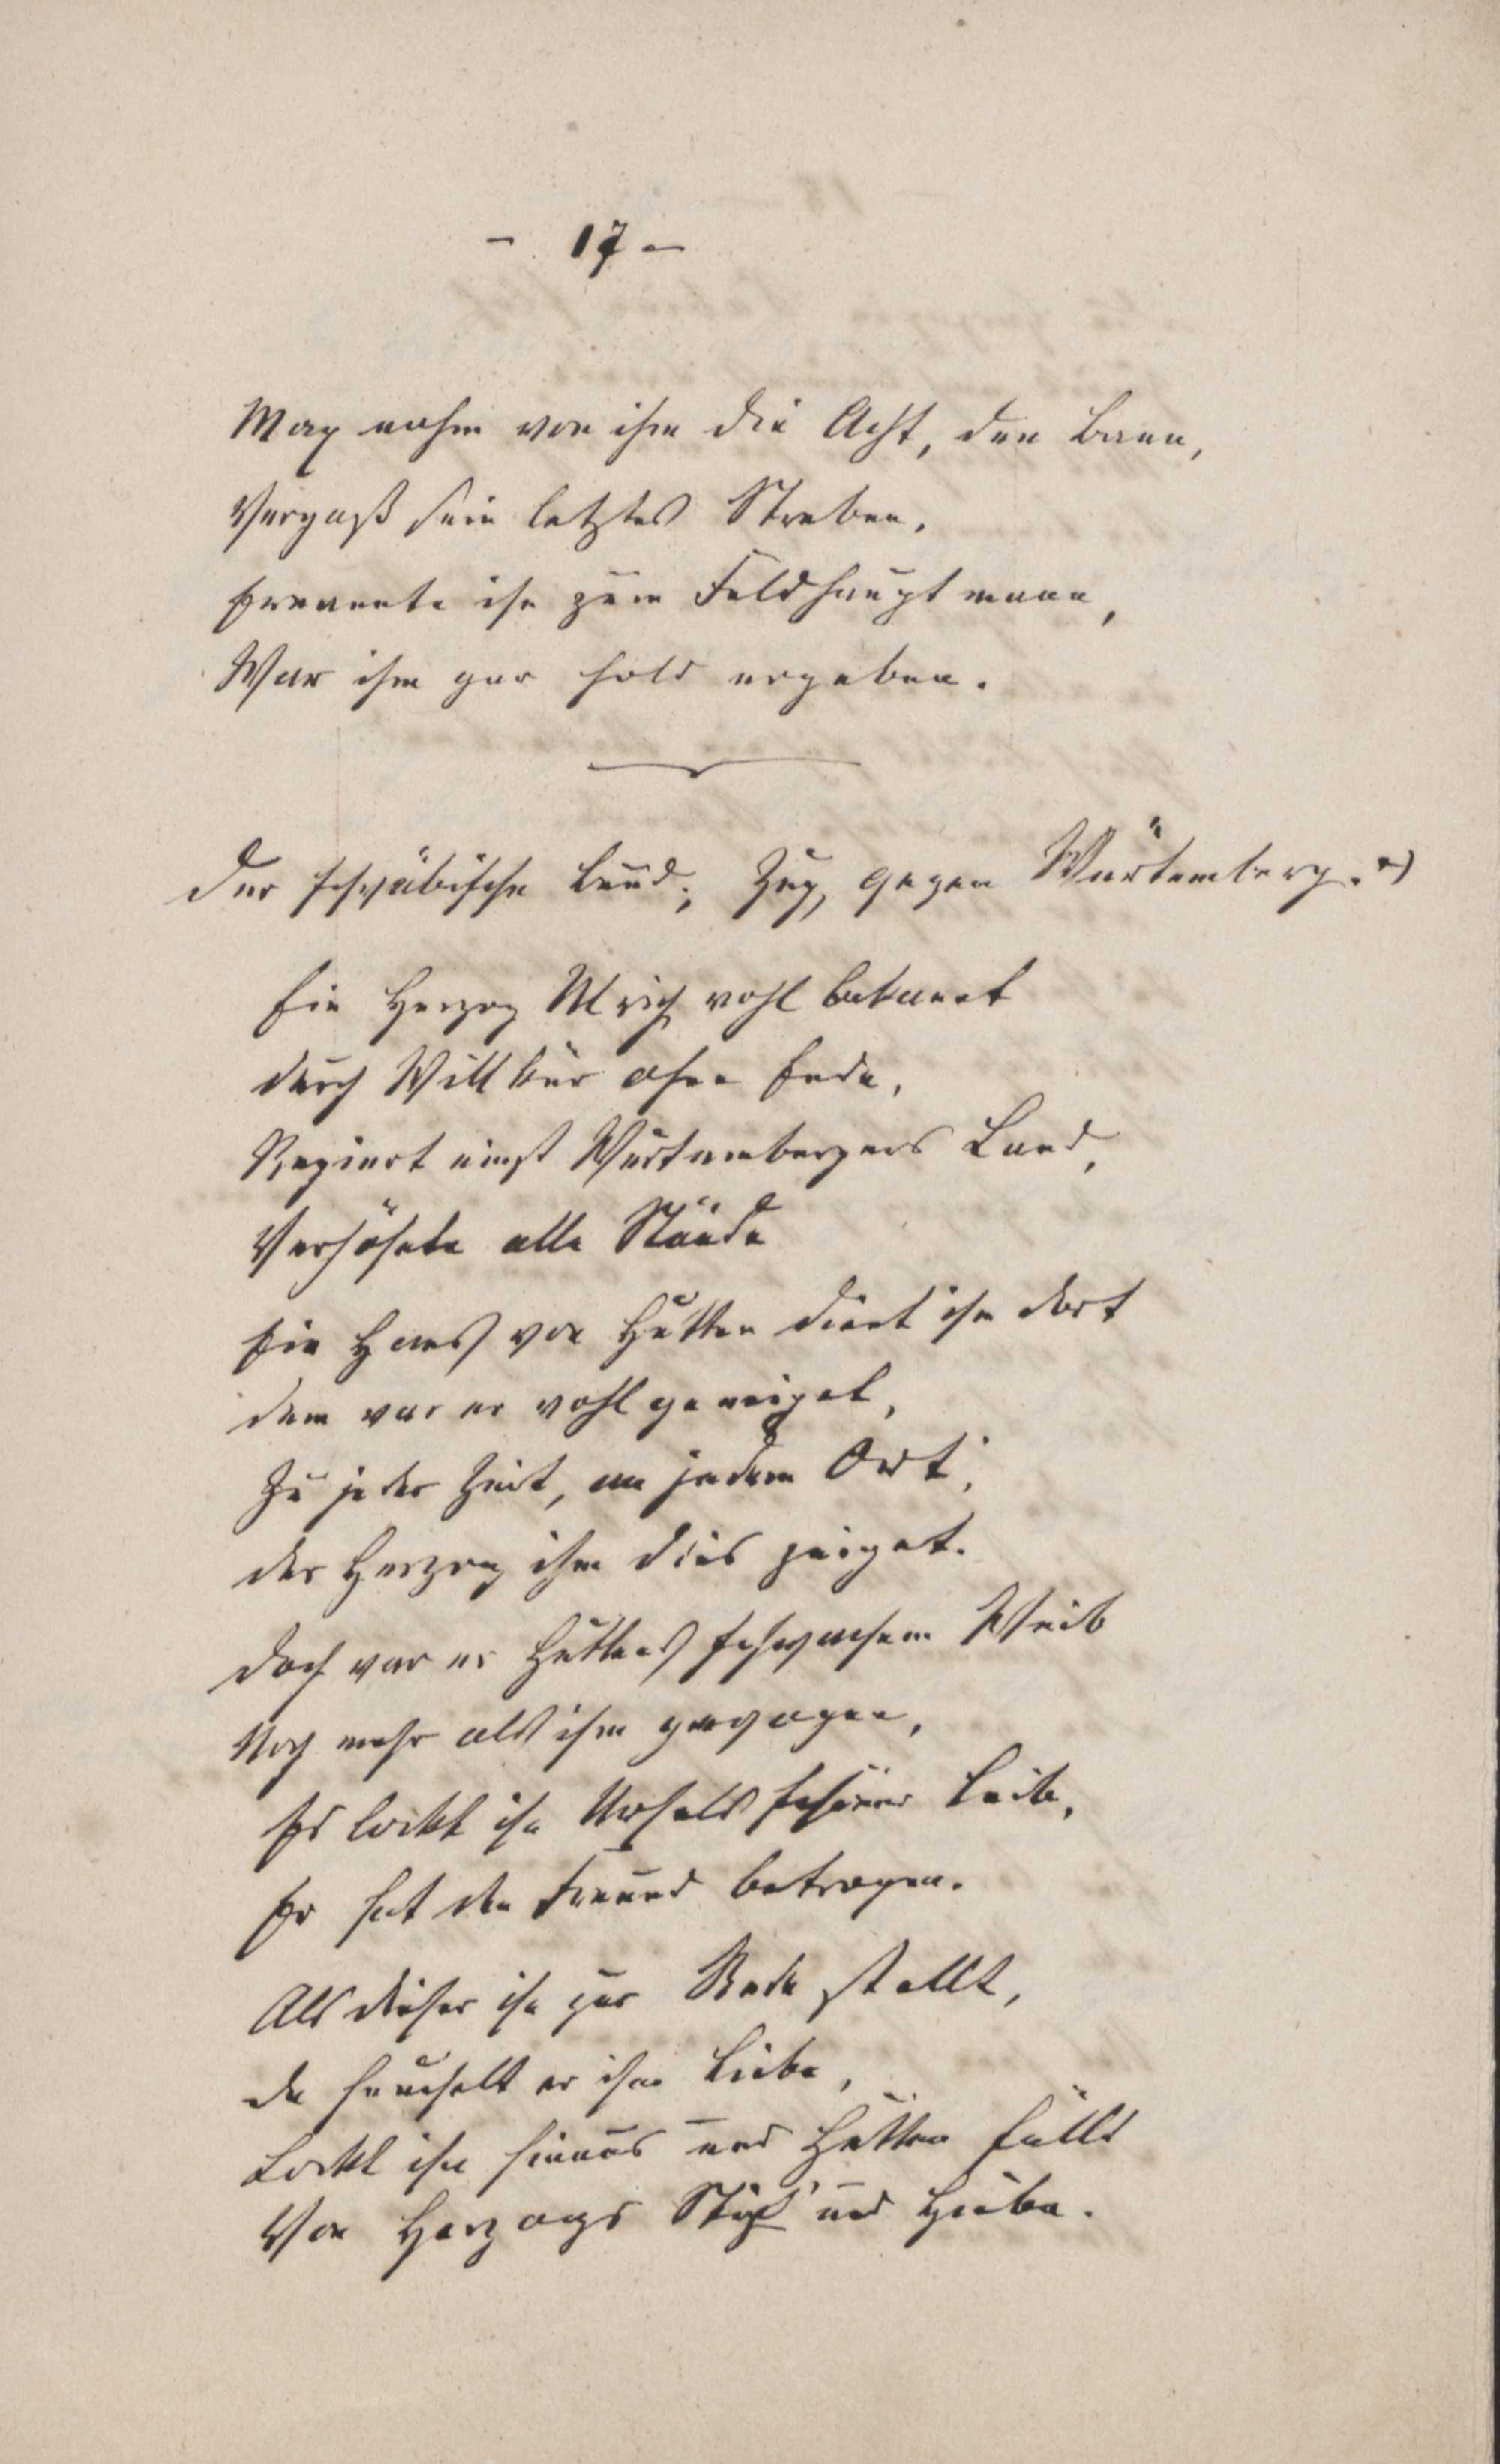 - 17 -
Max nahm von ihm die Acht, den Bann,
Vergaß sein letztes Streben,
Ernannte ihn zum Feldhauptmann,
War ihm gar hold ergeben.
Der schwäbische Bund; Zug gegen Würtemberg. *)
Ein Herzog Ulrich wohl bekannt
durch Willkür ohne Ende,
Regiert einst Würtembergers Land,
Verhöhnte alle Stände
Ein Hans von Hutten dient ihm dort
dem war er wohl geneiget,
Zu jeder Zeit, an jedem Ort,
der Herzog ihm dies zeiget.
Doch war er Huttens schwachem Weib
Noch mehr als ihm gewogen,
Es lockt ihn Ursulas schöner Leib,
Er hat den Freund betrogen.
Als dieser ihn zur Rede stellt,
da heuchelt er ihm Liebe,
Lockt ihn hinaus und Hutten fällt
Von Herzogs Stich und Hiebe.